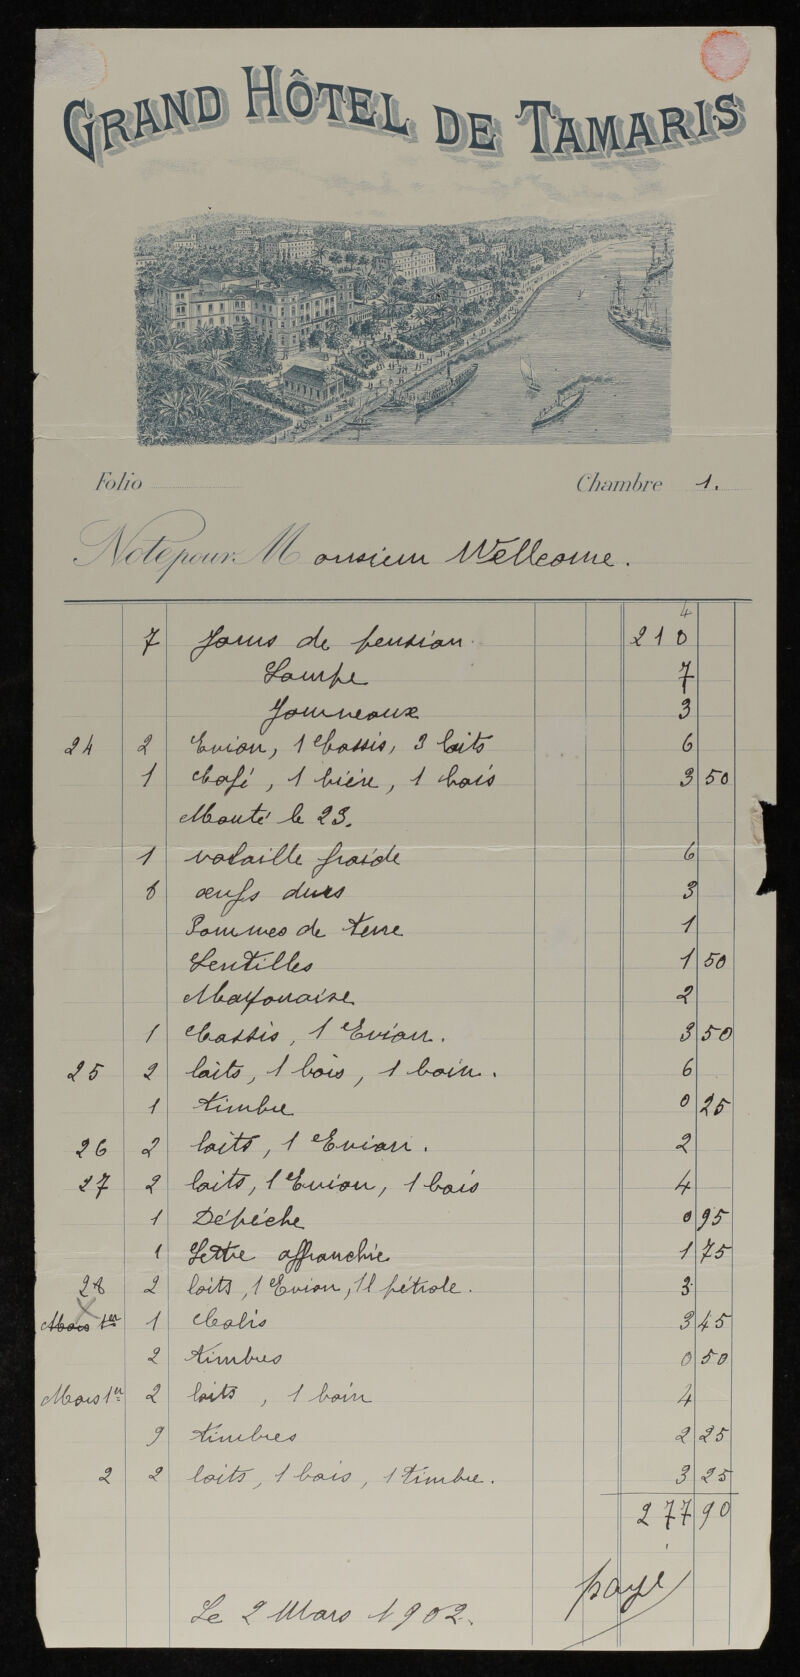 GRAND HÔTEL DE TAMARIS
Folio Chambre 1.
Note pour Monsieur Wellcome.
4
7 Jours de pension 210
Lampe 7
Journeaux 3
24 2 Evian, 1 Cassis, 3 laits 6
1 Café, 1 bière, 1 bois 3 50
Monté le 23.
1 volaille froide 6
6 œufs durs 3
Pommes de terre 1
Lentilles 1 50
Mayonaise 2
1 Cassis, 1 Evian. 3 50
25 2 laits, 1 bois, 1 bain. 6
1 timbre 0 25
26 2 laits, 1 Evian. 2
27 2 laits, 1 Evian, 1 bois 4
1 Dépéche 0 95
1 Lettre affranchie 1 75
28 2 laits, 1 Evian, 1 l pétrole. 3
Mars 1er 1 Colis 3 45
2 timbres 0 50
Mars 1er 2 laits, 1 bain 4
9 timbres 2 25
2 2 laits, 1 bois, 1 timbre. 3 25
277 90
payé
Le 2 Mars 1902.